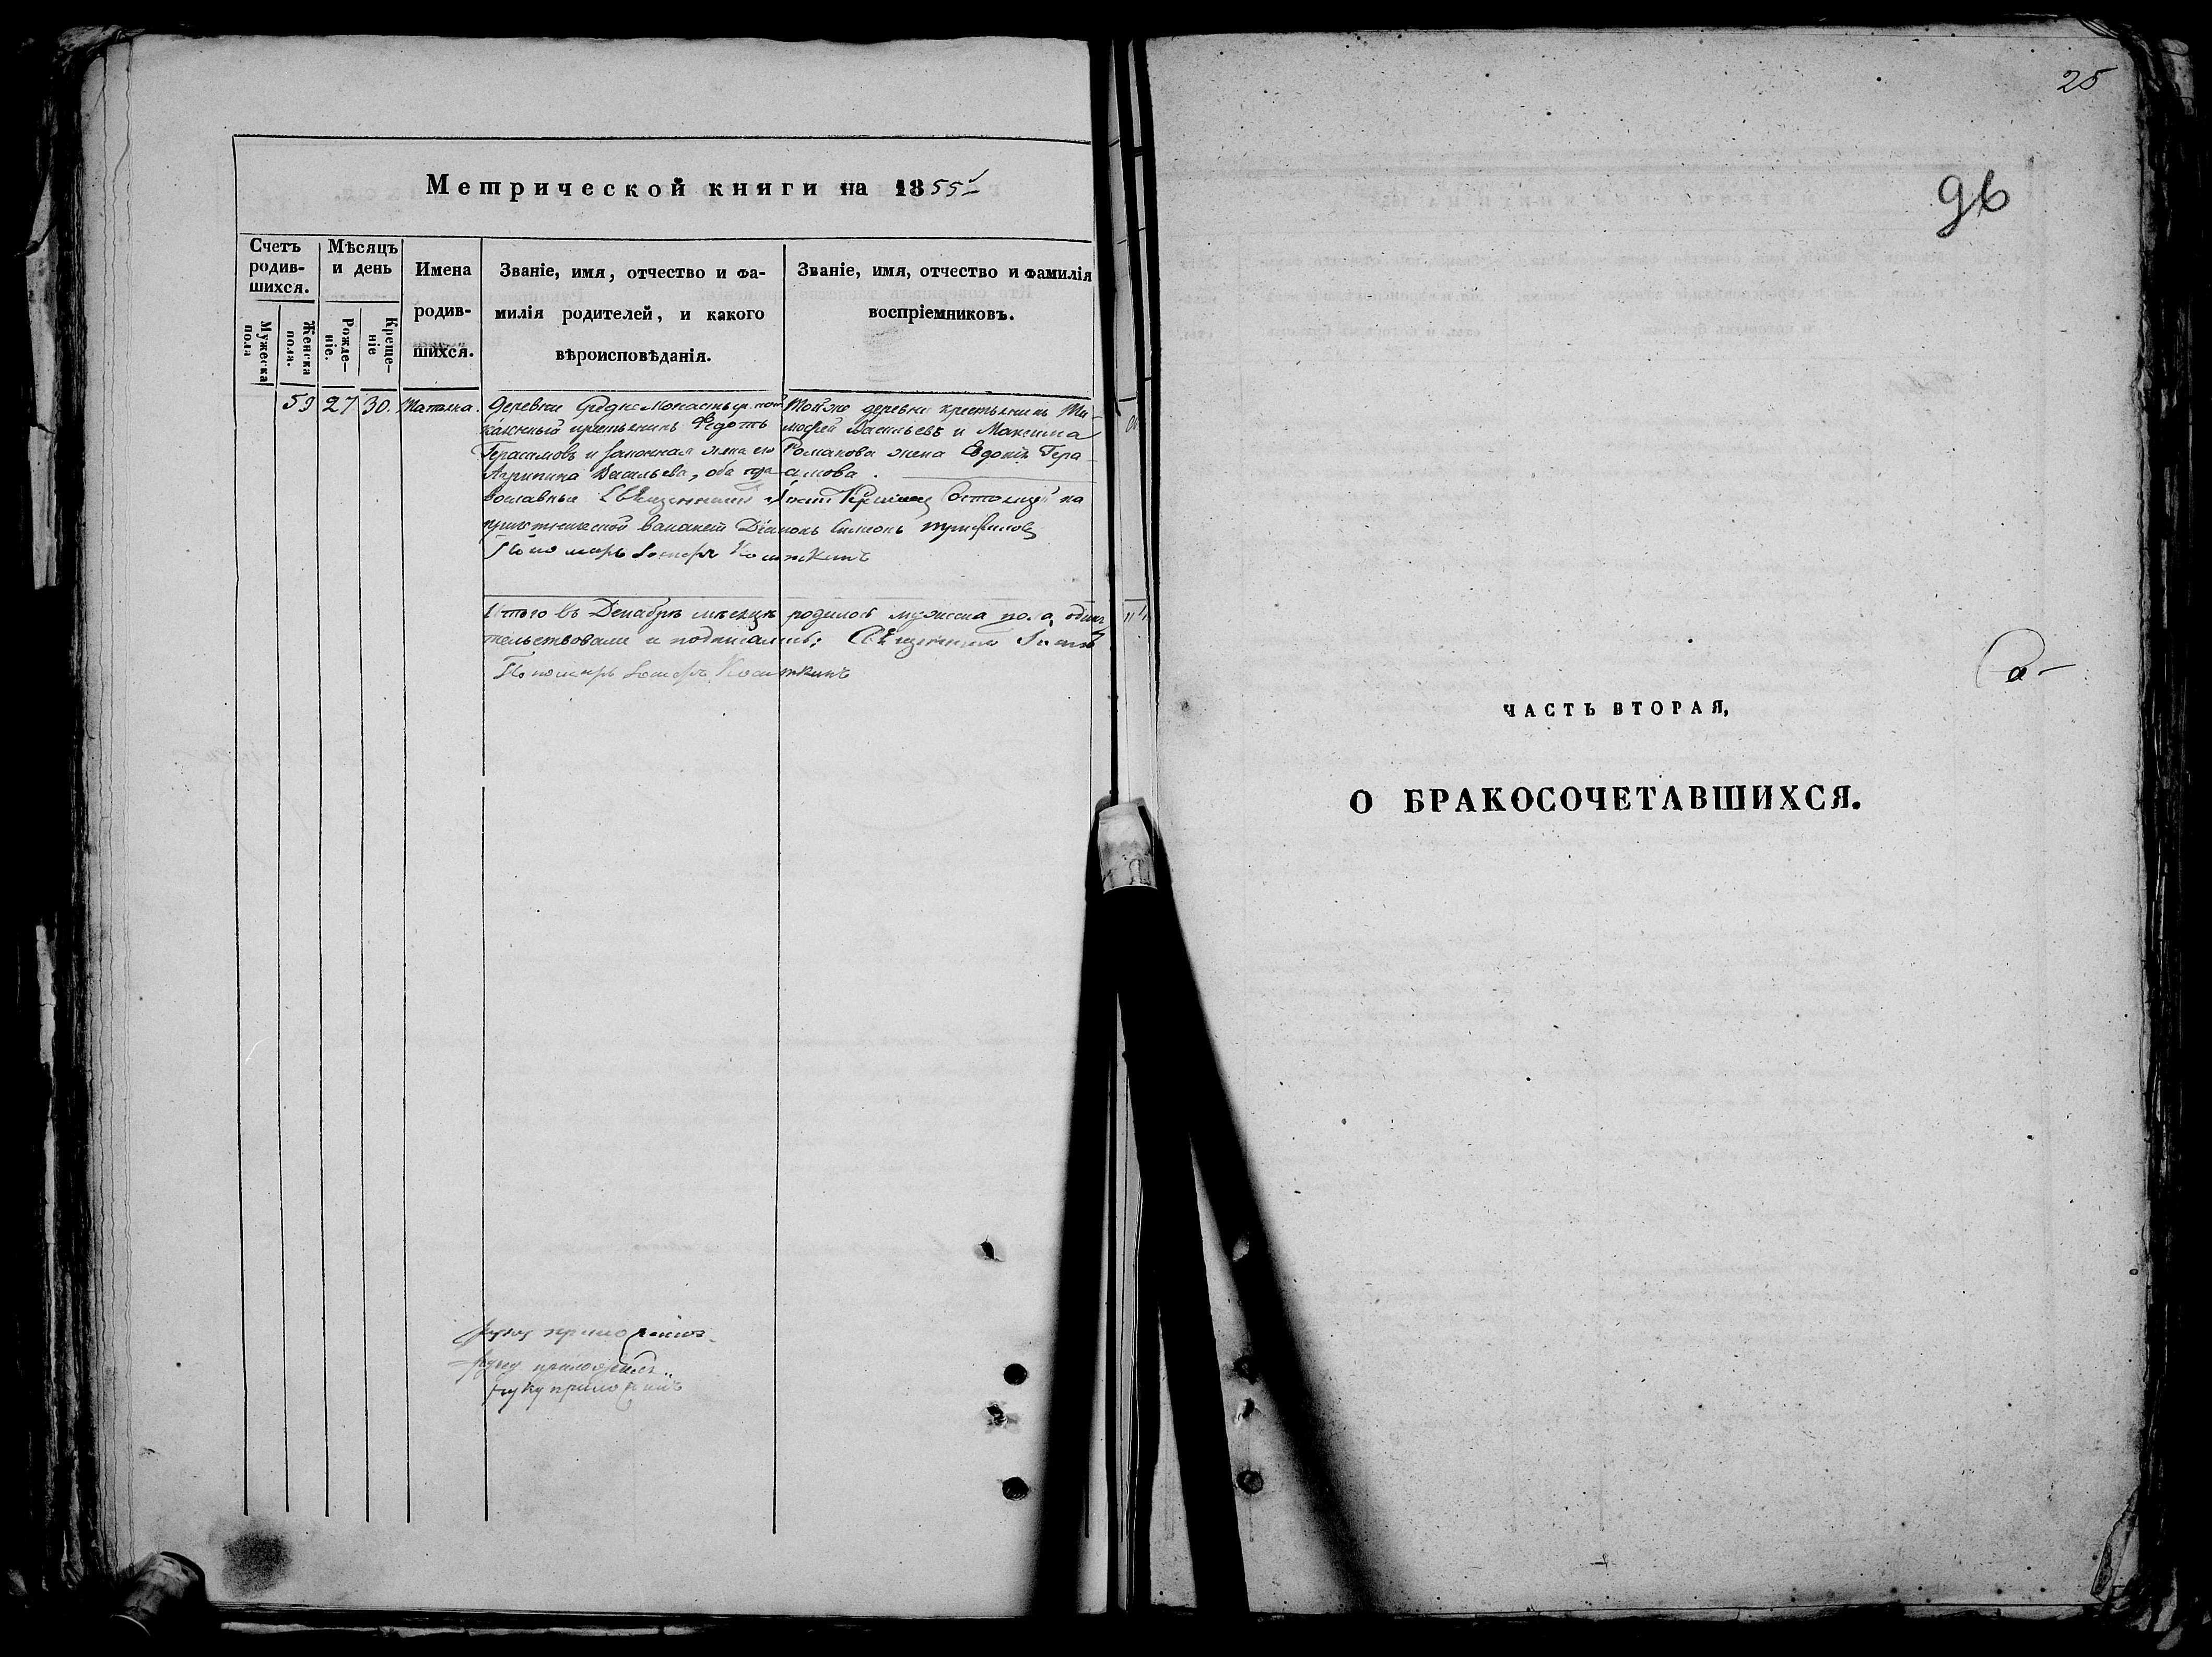 Метрической книги на 1855
Счетъ
родив-
шихся.
Мужеска
пола
Женска
пола.
Мѣсяцъ
и день
Рожде-
ніе.
Креще-
ніе
Имена
родив-
шихся.
Званіе, имя, отчество и фа-
милія родителей, и какого
вѣроисповѣданія.
Званіе, имя, отчество и фамилія
воспріемниковъ.
59 27 30. Наталиа.
Деревни
крестьянинъ Федотъ
Герасимовъ и законная жена его
Агрипина Васильева, оба пра-
вославные Священникъ
Діаконъ Симеонъ
Пономарь
Тойже деревни крестьянинъ Ти-
мофей Васильевъ и Максима
Романова жена Евдокія Гера-
симова.
Итого въ Декабрѣ мѣсяцѣ родилось мужеска пола одинъ
тельствовали и подписались: Священникъ
Пономарь
руку приложилъ
руку приложилъ
руку приложилъ
25
96
ЧАСТЬ ВТОРАЯ,
О БРАКОСОЧЕТАВШИХСЯ.